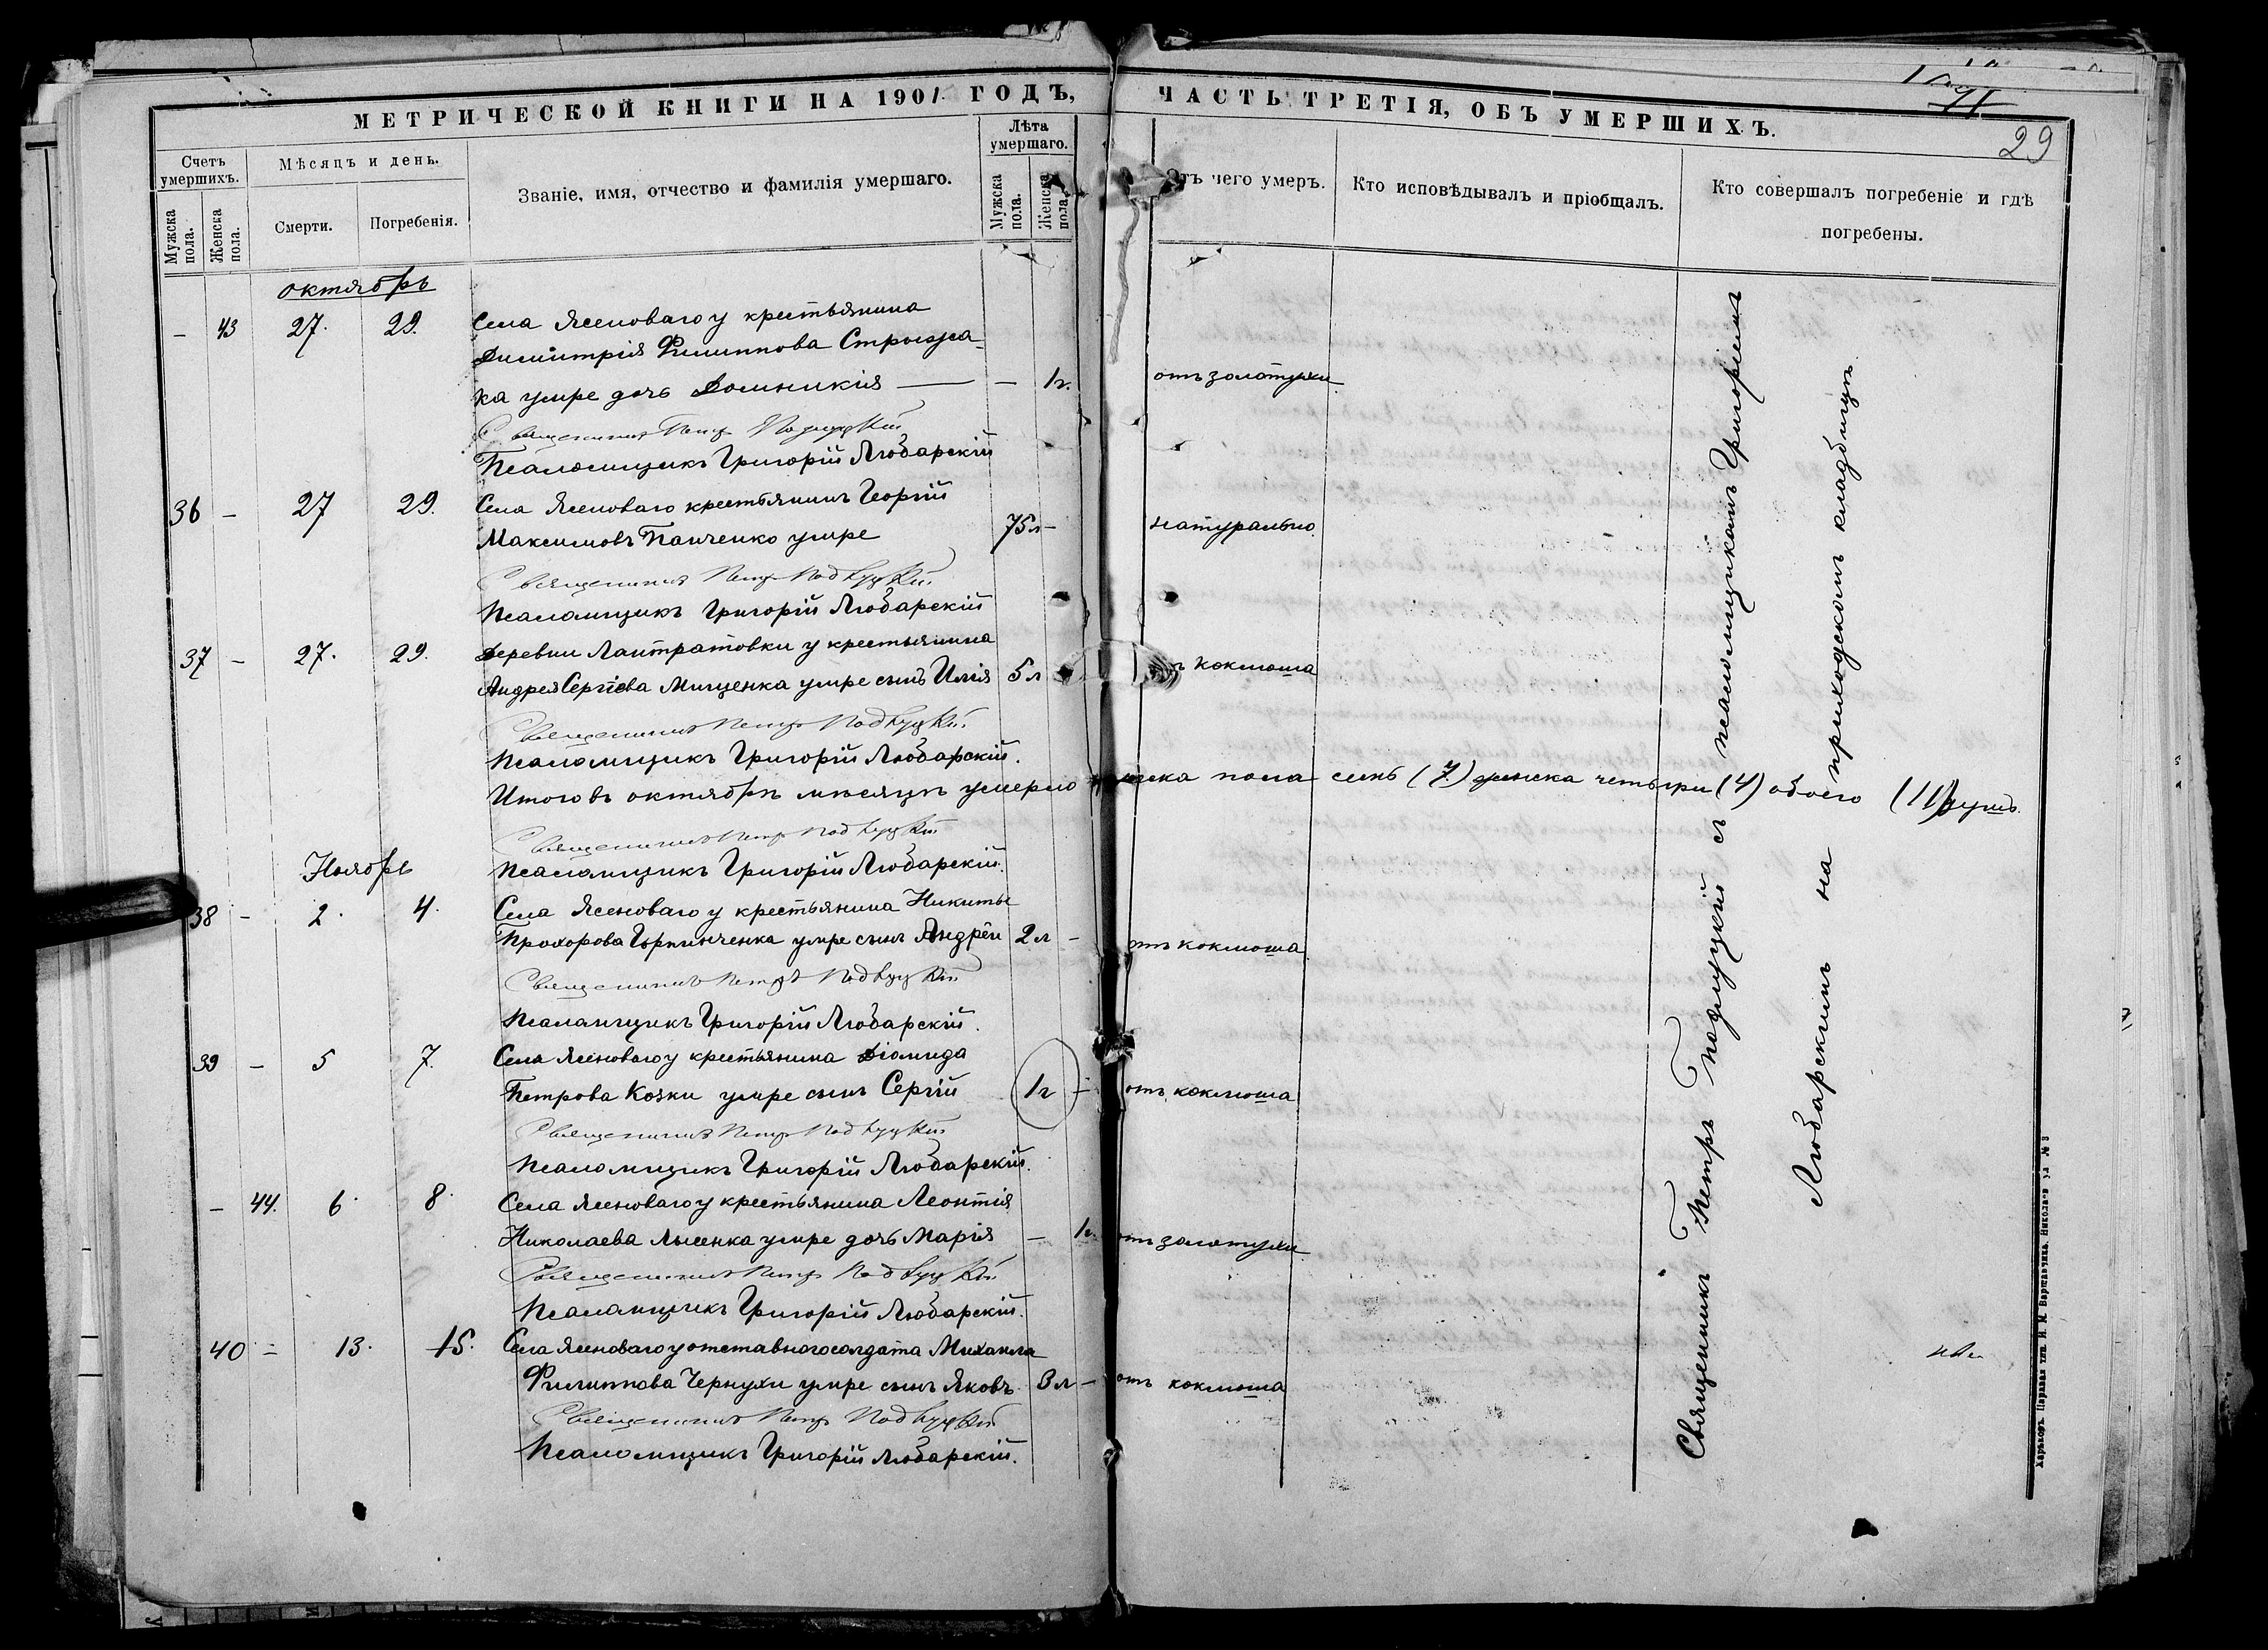 МЕТРИЧЕСКОЙ КНИГИ НА 1901 ГОДЪ,
ЧАСТЬ ТРЕТІЯ, ОБЪ УМЕРШИХЪ.
29
Счетъ умершихъ.
Мѣсяцъ и день.
Званіе, имя, отчество и фамилія умершаго.
Лѣта умершаго.
Отъ чего умеръ.
Кто исповѣдывалъ и пріобщалъ.
Кто совершалъ погребеніе и гдѣ
погребены.
Мужска пола.
Женска пола.
Смерти.
Погребенія.
Мужска пола.
Женска пола.
октябрь
– 43 27. 29. Села Ясеноваго у крестьянина
Димитрія Филиппова
ка умре дочь Домникія — – 1г. отъ золотухи
Священникъ Петръ Подлуцкій
Псаломщикъ Григорій Любарскій
36 – 27 29. Села Ясеноваго крестьянинъ Георгій
Максимовъ Панченко умре 75л – натурально.
Священникъ Петръ Подлуцкій
Псаломщикъ Григорій Любарскій
37 – 27. 29. Деревни Лантратовки у крестьянина
Андрея Сергіева Мищенка умре сынъ Илія 5л отъ коклюша
Священникъ Петръ Подлуцкій
Псаломщикъ Григорій Любарскій.
Итого въ октябрѣ мѣсяцѣ умерло мужска пола семь (7) женска четыри (4) обоего (11) душъ.
Священникъ Петръ Подлуцкій
Псаломщикъ Григорій Любарскій.
Ноябрь
38 – 2. 4. Села Ясеноваго у крестьянина Никиты
Прохорова умре сынъ Андрей 2л – отъ коклюша
Священникъ Петръ Подлуцкій
Псаломщикъ Григорій Любарскій.
39 – 5 7. Села Ясеноваго у крестьянина Діомида
Петрова Козки умре сынъ Сергій 1г – отъ коклюша
Священникъ Петръ Подлуцкій
Псаломщикъ Григорій Любарскій.
– 44. 6. 8. Села Ясеноваго у крестьянина Леонтія
Николаева Лысенка умре дочь Марія – 1г отъ золотухи
Священникъ Петръ Подлуцкій
Псаломщикъ Григорій Любарскій.
40 – 13. 15. Села Ясеноваго у отставного солдата Михаила
Филиппова Чернухи умре сынъ Яковъ. 3л – отъ коклюша
Священникъ Петръ Подлуцкій
Псаломщикъ Григорій Любарскій.
Священникъ Петръ Подлуцкій съ псаломщикомъ Григоріемъ
Любарскимъ на приходскомъ кладбищѣ.
Харьковъ. Паровая тип. И. М. Варшавчика. Николаев. ул. № 3